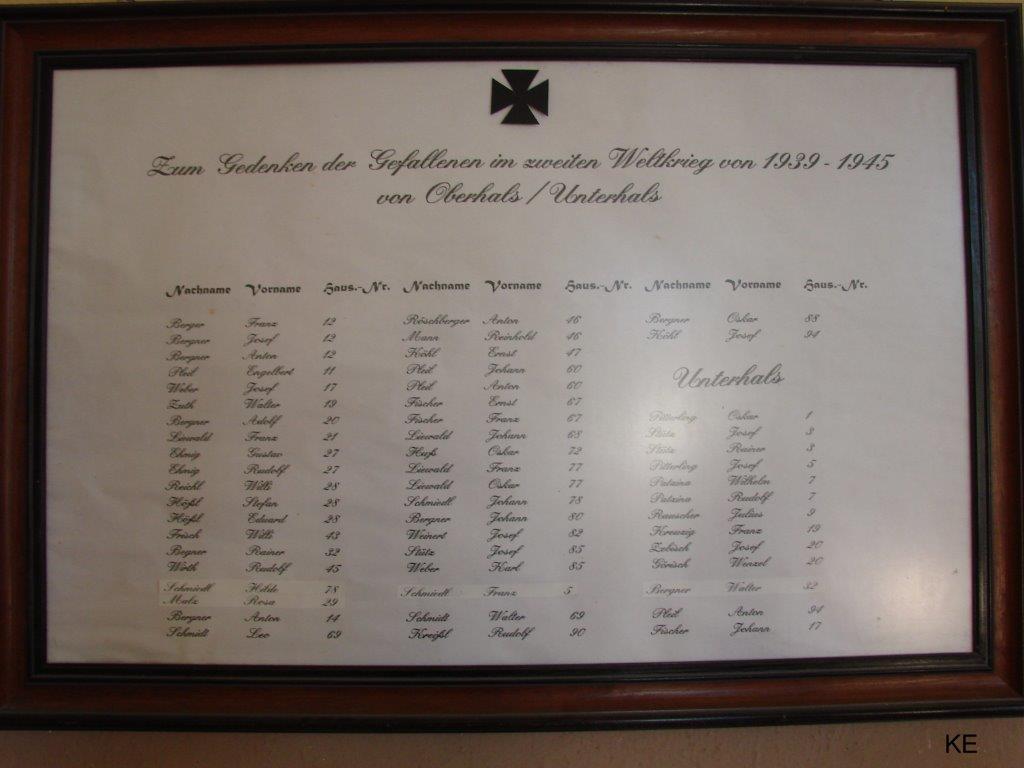 Zum Gedenken der Gefallenen im zweiten Weltkrieg von 1939 - 1945
von Oberhals / Unterhals
Nachname Vorname Haus.-Nr. Nachname Vorname Haus.-Nr. Nachname Vorname Haus.-Nr.
Berger Franz 12 Röschberger Anton 46 Bergner Oskar 88
Bergner Josef 12 Mann Reinhold 46 Köhl Josef 94
Bergner Anton 12 Köhl Ernst 47
Pleil Engelbert 11 Pleil Johann 60
Unterhals
Weber Josef 17 Pleil Anton 60
Zuth Walter 19 Fischer Ernst 67
Bergner Adolf 20 Fischer Franz 67 Pitterling Oskar 1
Liewald Franz 21 Liewald Johann 68 Stütz Josef 3
Ehmig Gustav 27 Huß Oskar 72 Stütz Rainer 3
Ehmig Rudolf 27 Liewald Franz 77 Pitterling Josef 5
Reichl Willi 28 Liewald Oskar 77 Patzina Wilhelm 7
Hößl Stefan 28 Schmiedl Johann 78 Patzina Rudolf 7
Hößl Eduard 28 Bergner Johann 80 Rauscher Julius 9
Frisch Willi 43 Weinert Josef 82 Kreuzig Franz 19
Begner Rainer 32 Stütz Josef 85 Zebisch Josef 20
Wirth Rudolf 45 Weber Karl 85 Görisch Wenzel 20
Schmiedl Hilde 78 Schmiedl Franz 5 Bergner Walter 32
Malz Rosa 29
Bergner Anton 14 Schmidt Walter 69 Pleil Anton 94
Schmidt Leo 69 Kreißl Rudolf 90 Fischer Johann 17
KE